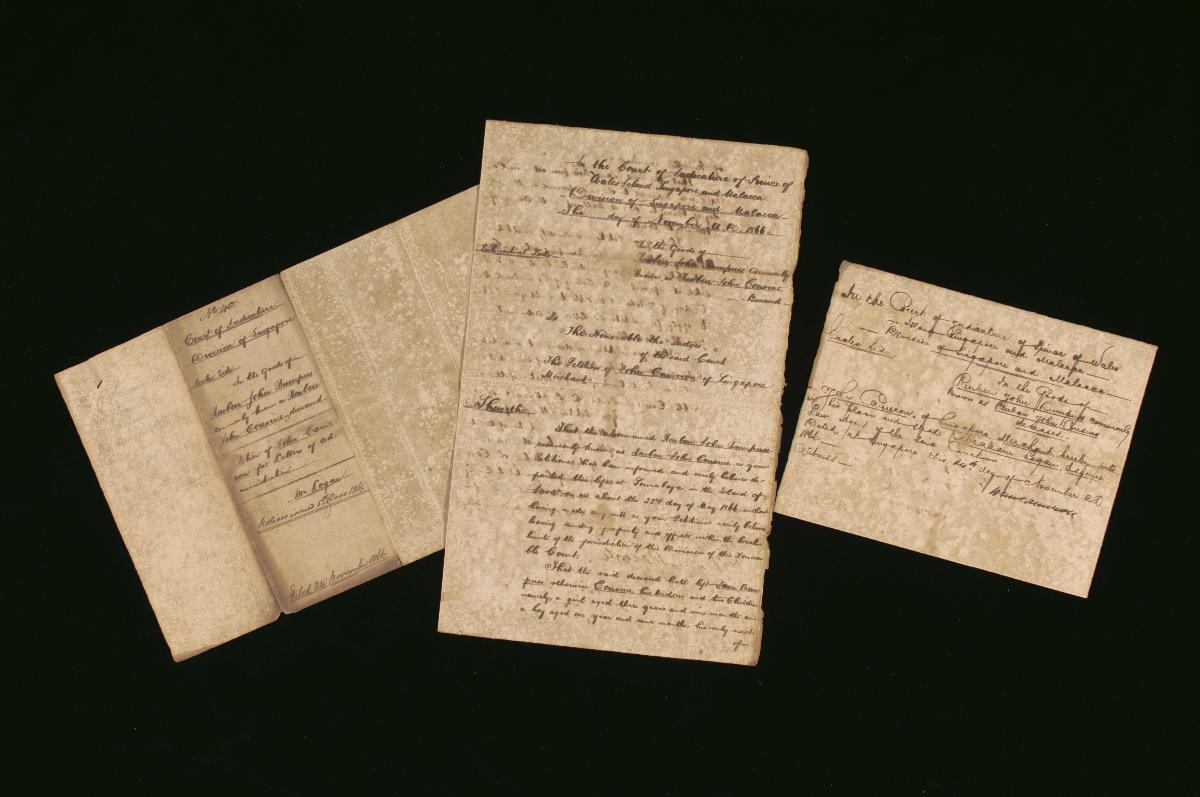 No 40.
Court of Judicature
Division of Singapore
Eccles: Side:
In the Goods of
Reuben John Bumpus
commonly known as Reuben
John Cousins deceased
Petition of John Came-
ron for Letters of ad-
ministration
Mr Logan
issued 5th Decr 1866
Filed 24 November 1866
In the Court of Judicature of Prince of
Wales Island Singapore and Malacca
Division of Singapore and Malacca
The day of November A.D. 1866
Ecclesiastical Side
In the Goods of
Reuben John Bumpus commonly
known as Reuben John Cousins
Deceased
To
The Honorable the Judges
of the said Court
The Petition of John Cameron of Singapore
Merchant
Sheweth
That the abovenamed Reuben John Bumpus
commonly known as Reuben John Cousins as your
Petitioner has been informed and verily believes de-
parted this life at Sourabaya in the Island of
on or about the 22nd day of May 1866 without
having made any will as your Petitioner verily believes
leaving property and effects within the local
limits of the jurisdiction of this Division of this Honora-
ble Court.
That the said deceased hath left Bum-
pus otherwise Cousins his widow and two Children
namely, a girl aged three years and nine months and
a boy aged one year and months, his only next
of
In the Court of Judicature of Prince of Wales
Island Singapore and Malacca
Division of Singapore and Malacca
Eccles: Side
In the Goods of
Reuben John Bumpus commonly
known as Reuben John Cousins
deceased.
John Cameron of Singapore Merchant hereby
in his place and stead Abraham Logan Esquire
Law Agent of the said Court
Dated at Singapore this 24th day of November A.D.
1866
Witness